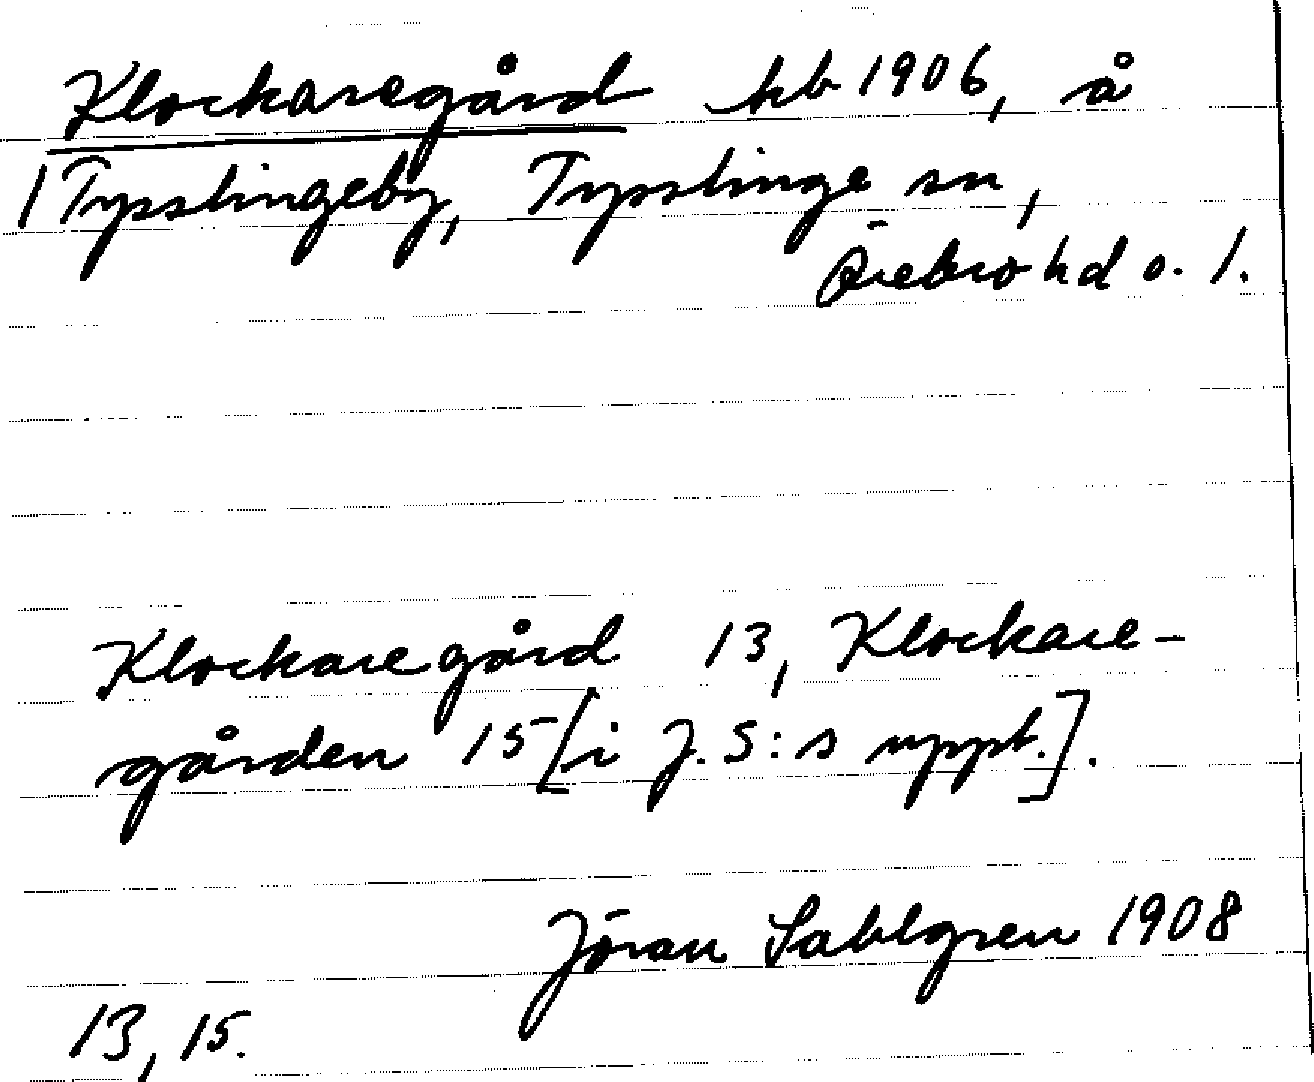 Klockaregård kb 1906, å
/Tysslingeby, Tysslinge sn,
Örebro hd o. l.
Klockaregård 13, Klockare-
gården 15 [i J. S:s uppt.].
Jöran Sahlgren 1908
13, 15.